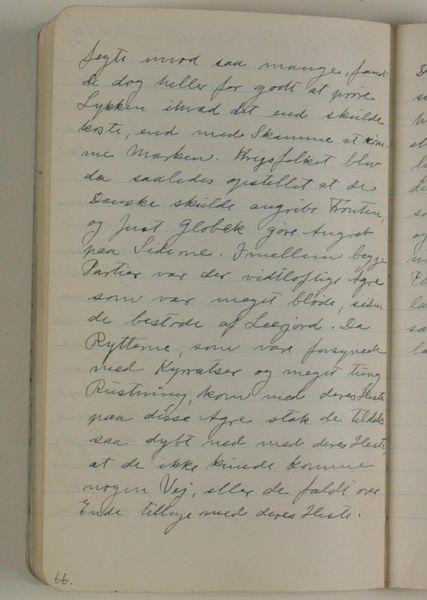 fegte imod saa mange, fandt
de dog heller for godt at prøve
Lykken ihvad det end skulde
koste, end med Skamme at røm-
me Marken. Krigsfolket blev
da saaledes opstillet at de
Danske skulde angribe Fronten,
og Just Globek gøre Angreb
paa Siderne. Imellem begge
Partier var der vidtløftige Agre
som var meget bløde, siden
de bestode af Leerjord. Da
Rytterne, som vare forsynede
med Kyradser og meget tung
Rüstning, kom med deres Heste
paa disse Agre stak de tildels
saa dybt ned med deres Heste,
at de ikke kunde komme
nogen Vej, eller de faldt over
Ende tillige med deres Heste.
66.